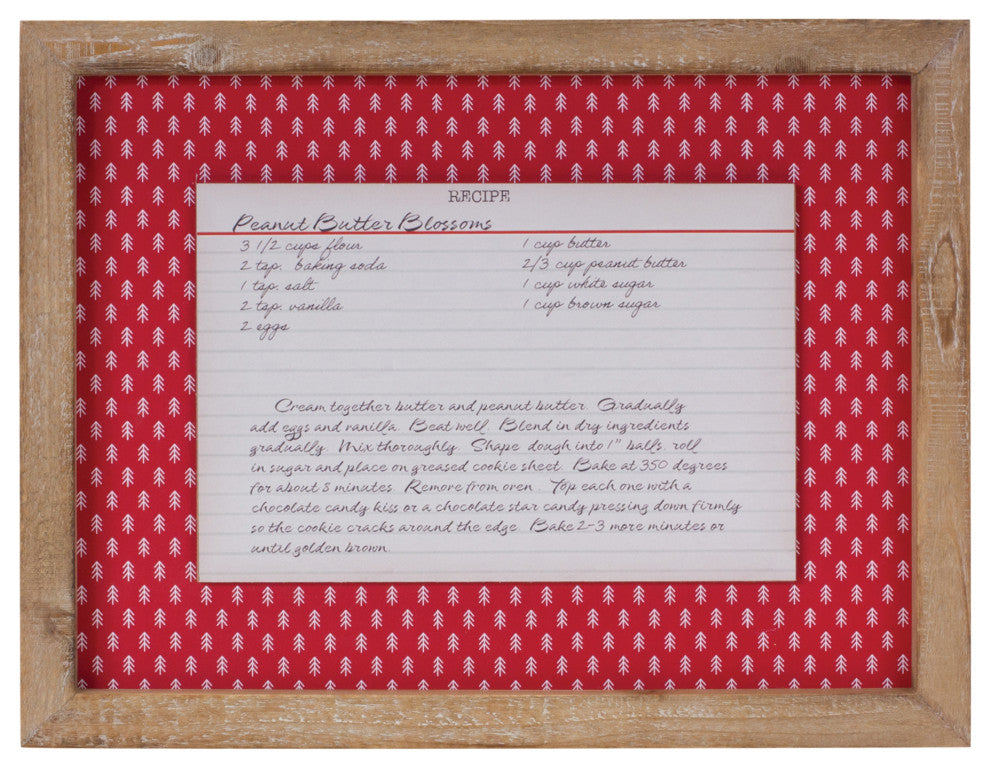 RECIPE
Peanut Butter Blossoms
3 1/2 cups flour
2 tsp. baking soda
1 tsp. salt
2 tsp. vanilla
2 eggs
1 cup butter
2/3 cup peanut butter
1 cup white sugar
1 cup brown sugar
Cream together butter and peanut butter. Gradually
add eggs and vanilla. Beat well. Blend in dry ingredients
gradually. Mix thoroughly. Shape dough into 1" balls, roll
in sugar and place on greased cookie sheet. Bake at 350 degrees
for about 8 minutes. Remove from oven. Top each one with a
chocolate candy kiss or a chocolate star candy pressing down firmly
so the cookie cracks around the edge. Bake 2-3 more minutes or
until golden brown.